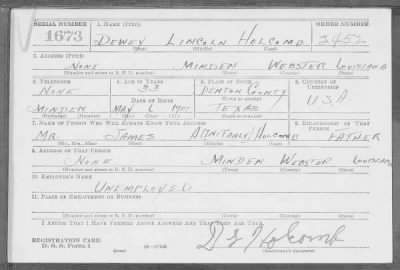 SERIAL NUMBER 1. NAME (Print) ORDER NUMBER
1673 DEWEY LINCOLN HOLCOMB 3452
(First) (Middle) (Last)
2. ADDRESS (Print)
NONE MINDEN WEBSTER LOUISIANA
(Number and street or R. F. D. number) (Town) (County) (State)
3. TELEPHONE 4. AGE IN YEARS 5. PLACE OF BIRTH 6. COUNTRY OF CITIZENSHIP
NONE 33 DENTON COUNTY
DATE OF BIRTH (Town or county) U.S.A
MINDEN MAY 1907 TEXAS
(Exchange) (Number) (Mo.) (Day) (Yr.) (State or country)
7. NAME OF PERSON WHO WILL ALWAYS KNOW YOUR ADDRESS 8. RELATIONSHIP OF THAT PERSON
MR. JAMES HOLCOMB FATHER
(Mr., Mrs., Miss) (First) (Middle) (Last)
9. ADDRESS OF THAT PERSON
NONE MINDEN WEBSTER LOUISIANA
(Number and street or R. F. D. number) (Town) (County) (State)
10. EMPLOYER'S NAME
UNEMPLOYED
11. PLACE OF EMPLOYMENT OR BUSINESS
(Number and street or R. F. D. number) (Town) (County) (State)
I AFFIRM THAT I HAVE VERIFIED ABOVE ANSWERS AND THAT THEY ARE TRUE.
REGISTRATION CARD
D. S. S. Form 1 (over) D L Holcomb
(Registrant's signature)